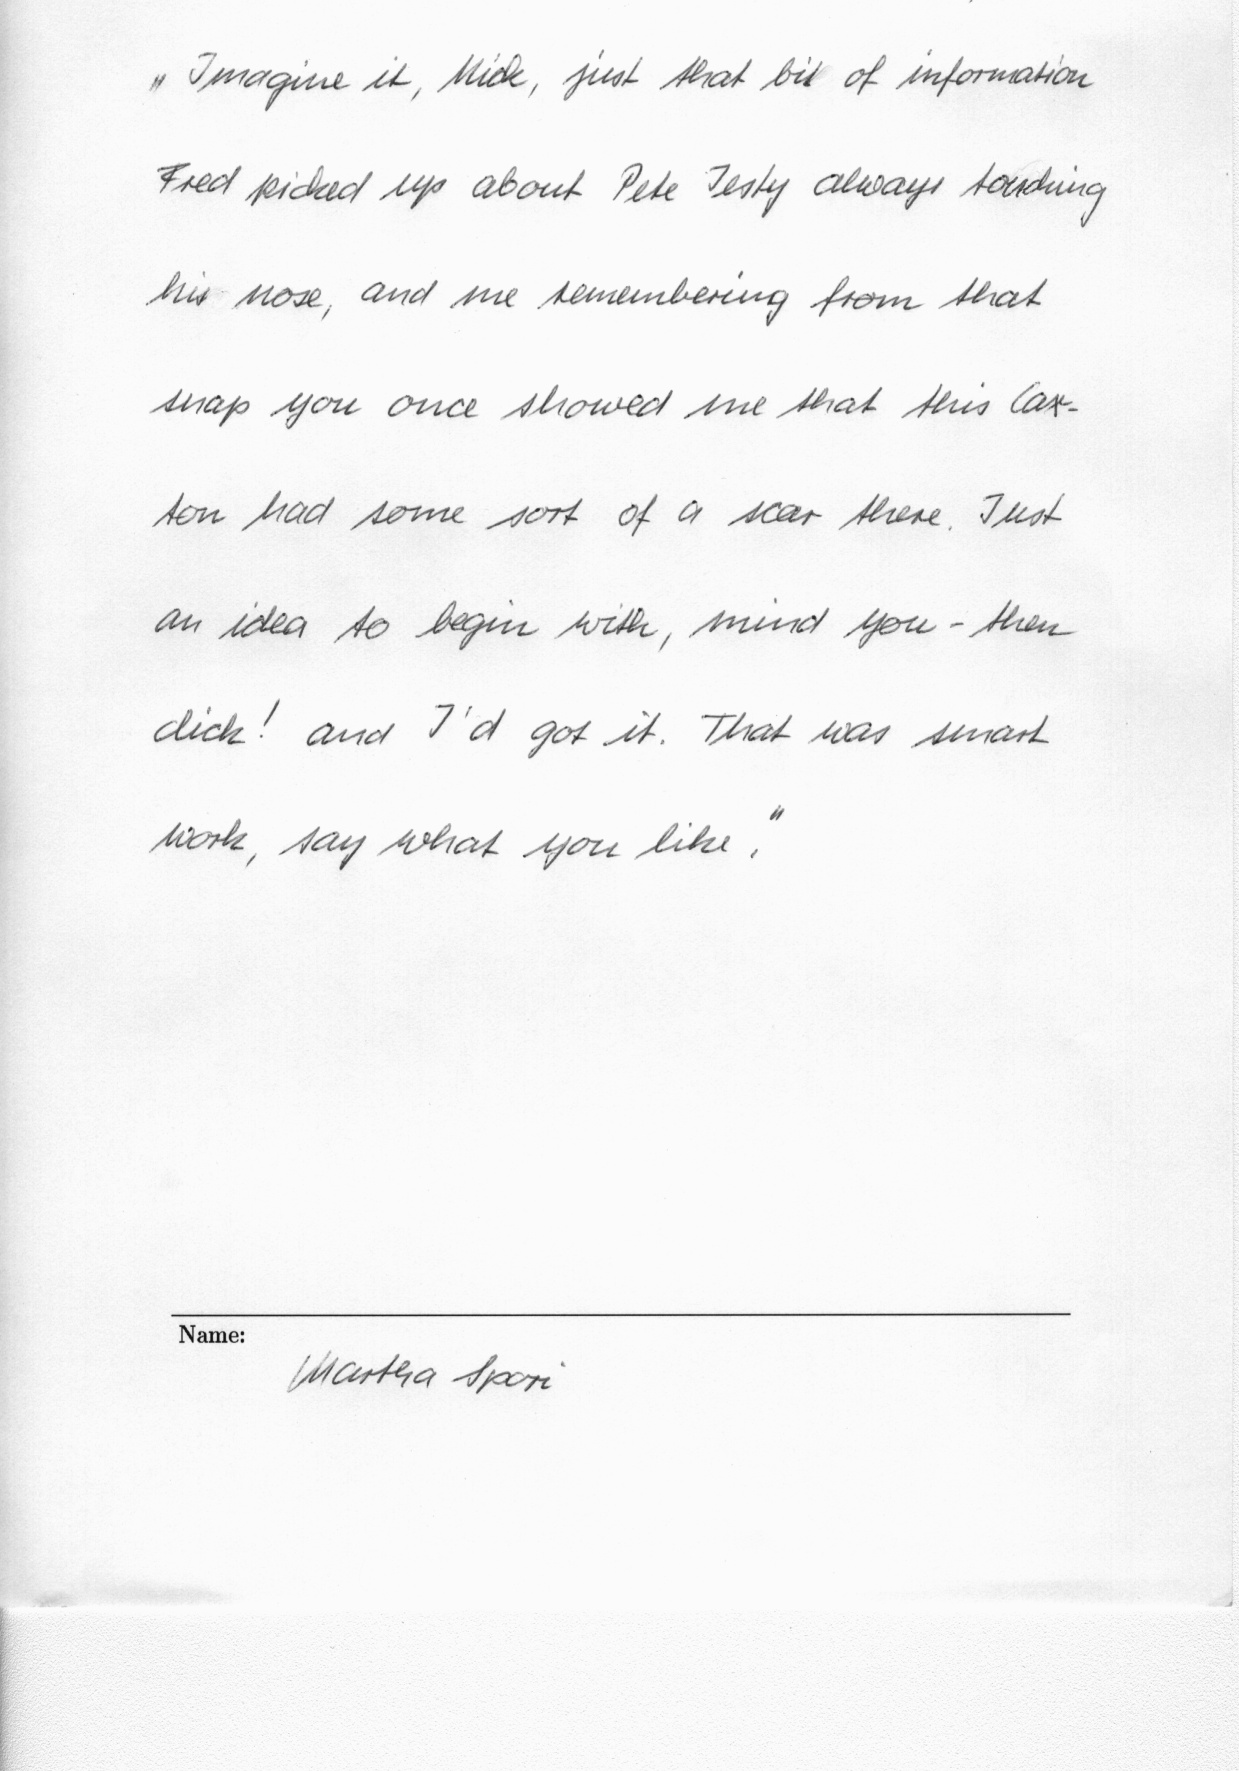 „Imagine it, Nick, just that bit of information
Fred picked up about Pete Testy always touching
his nose, and me remembering from that
snap you once showed me that this Cax-
ton had some sort of a scar there. Just
an idea to begin with, mind you - then
click! and I'd got it. That was smart
work, say what you like."
Name:
Martha Spori